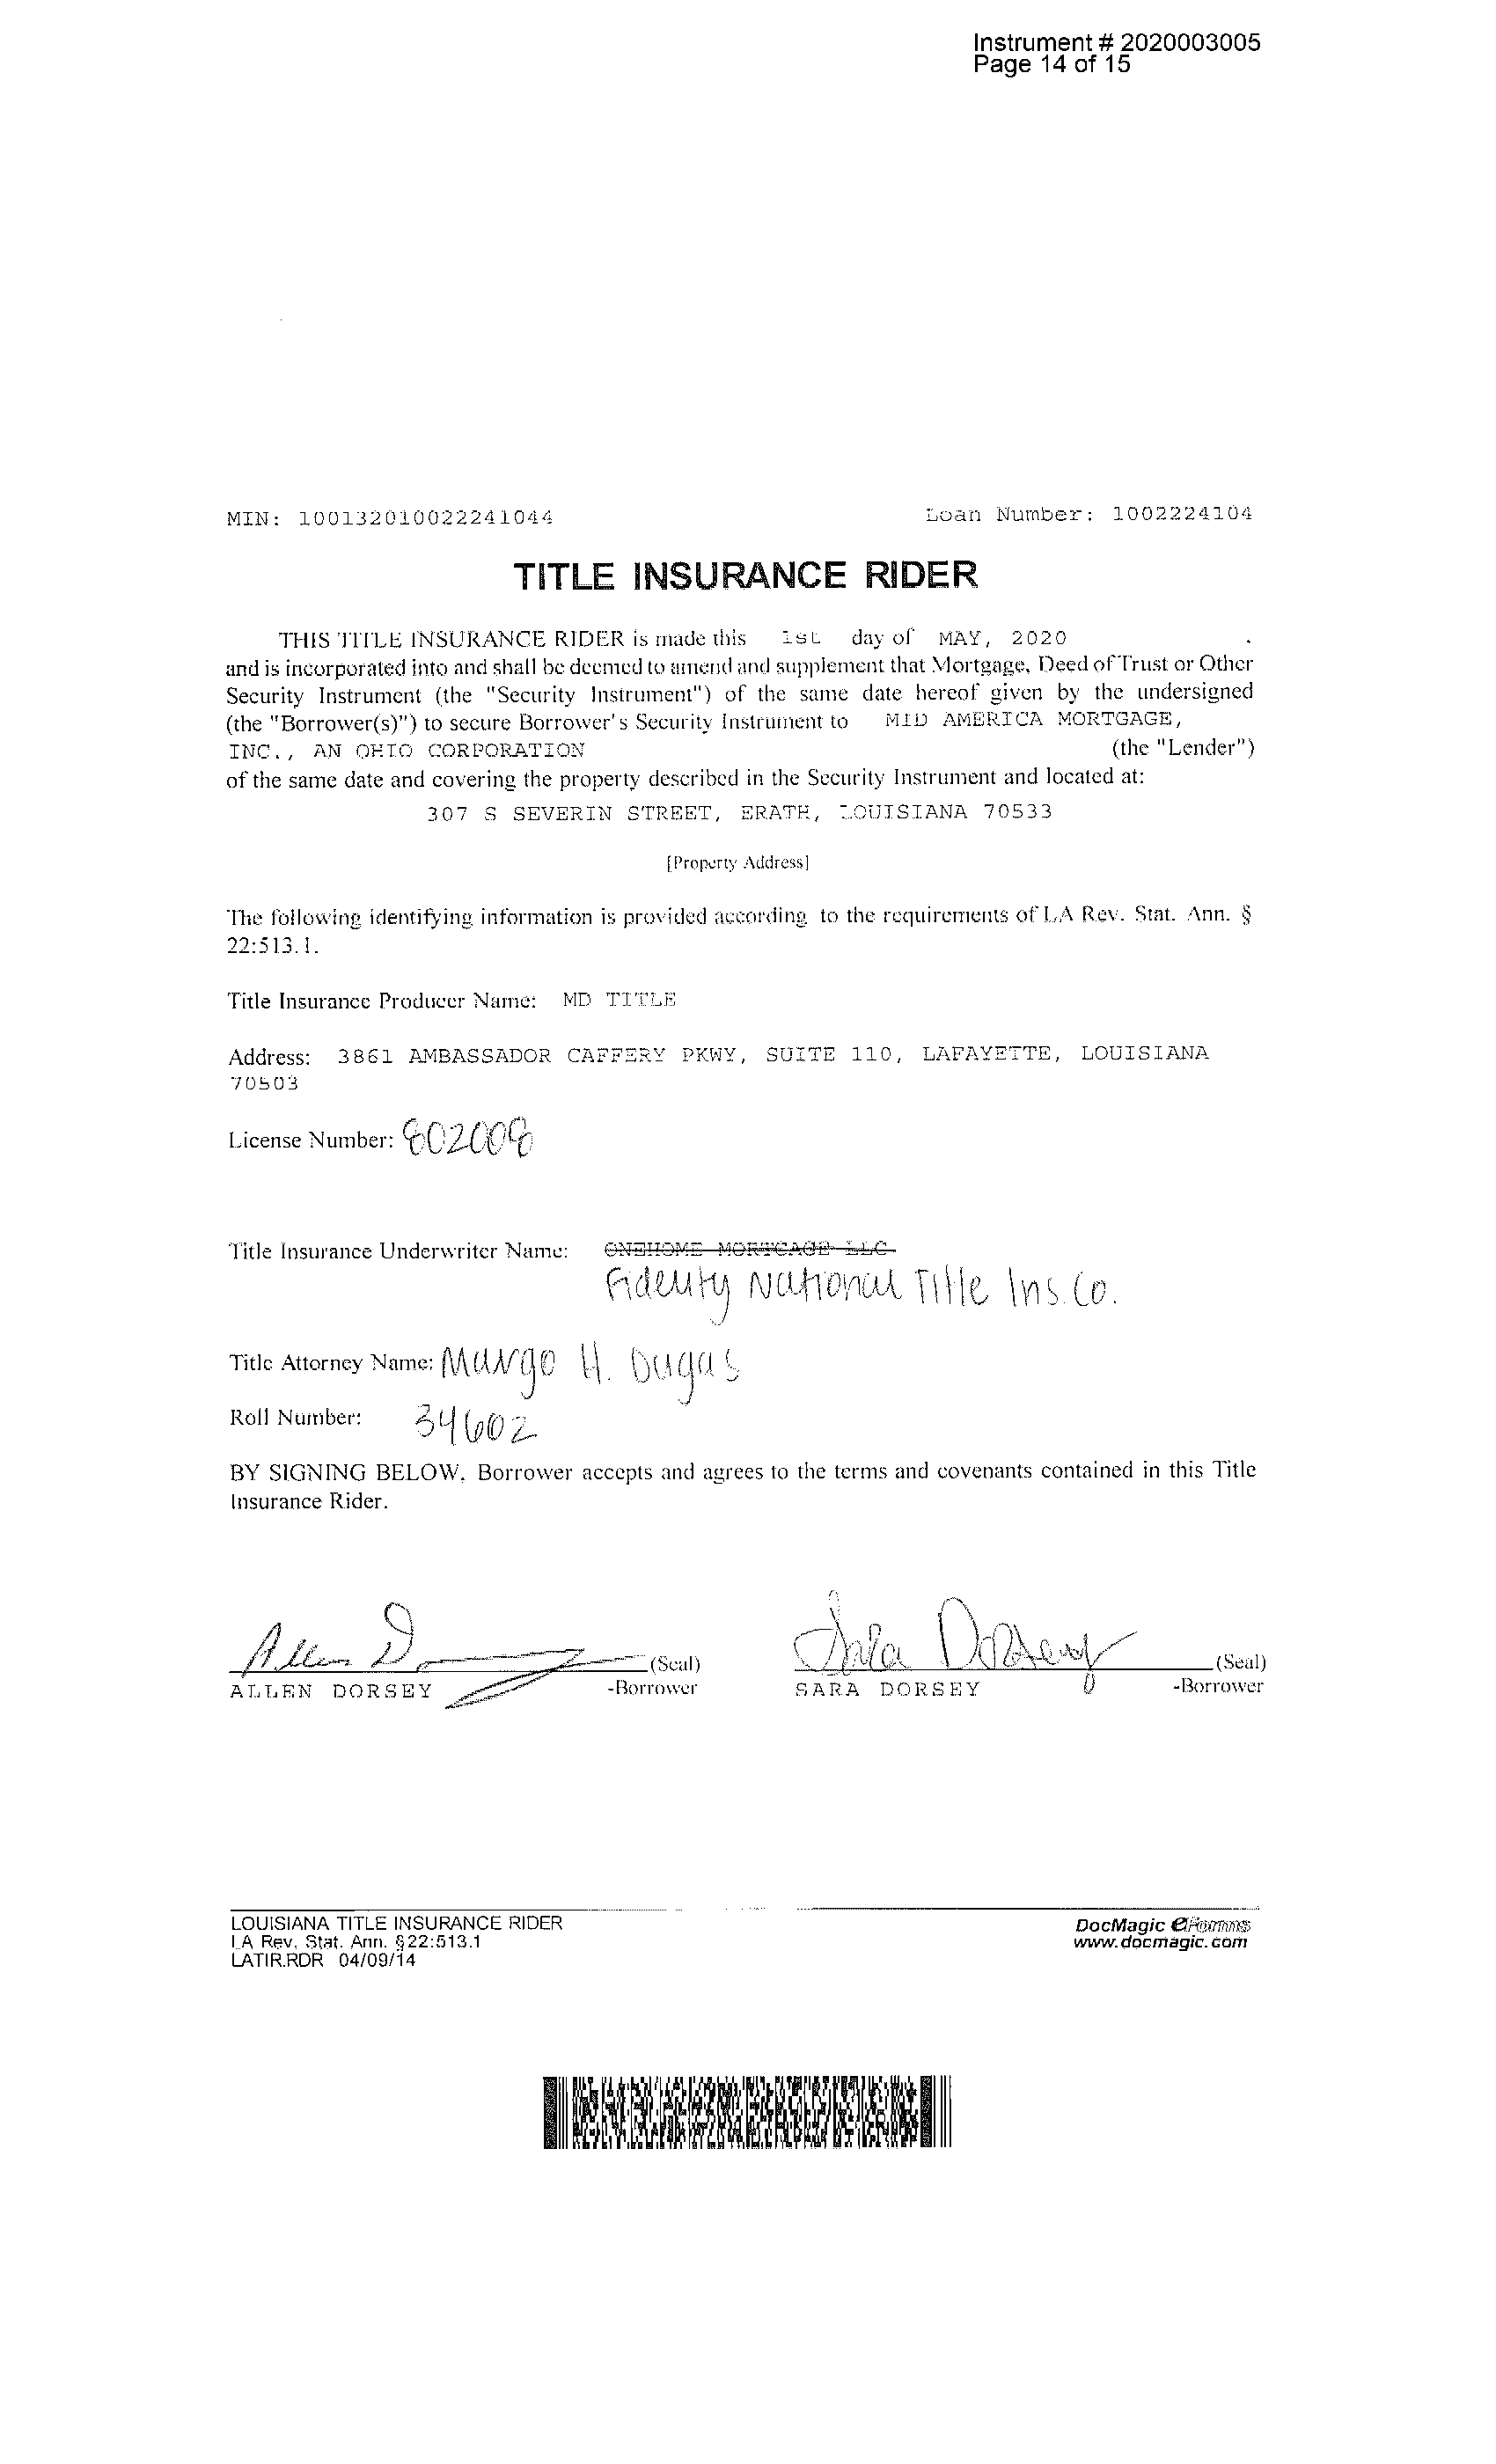 Instrument # 2020003005
Page 14 of 15
MIN: 100132010022241044 Loan Number: 1002224104
TITLE INSURANCE RIDER
THIS TITLE INSURANCE RIDER is made this 1st day of MAY, 2020 .
and is incorporated into and shall be deemed to amend and supplement that Mortgage, Deed of Trust or Other
Security Instrument (the "Security Instrument") of the same date hereof given by the undersigned
(the "Borrower(s)") to secure Borrower's Security Instrument to MID AMERICA MORTGAGE,
INC., AN OHIO CORPORATION (the "Lender")
of the same date and covering the property described in the Security Instrument and located at:
307 S SEVERIN STREET, ERATH, LOUISIANA 70533
[Property Address]
The following identifying information is provided according to the requirements of LA Rev. Stat. Ann. §
22:513.1.
Title Insurance Producer Name: MD TITLE
Address: 3861 AMBASSADOR CAFFERY PKWY, SUITE 110, LAFAYETTE, LOUISIANA
70503
License Number: 802008
Title Insurance Underwriter Name: ONEHOME MORTGAGE LLC
Fidelity National Title Ins. Co.
Title Attorney Name: Margo H. Dugas
Roll Number: 34602
BY SIGNING BELOW, Borrower accepts and agrees to the terms and covenants contained in this Title
Insurance Rider.
Allen D (Seal) Sara Dorsey (Seal)
ALLEN DORSEY -Borrower SARA DORSEY -Borrower
LOUISIANA TITLE INSURANCE RIDER DocMagic eForms
LA Rev. Stat. Ann. §22:513.1 www.docmagic.com
LATIR.RDR 04/09/14